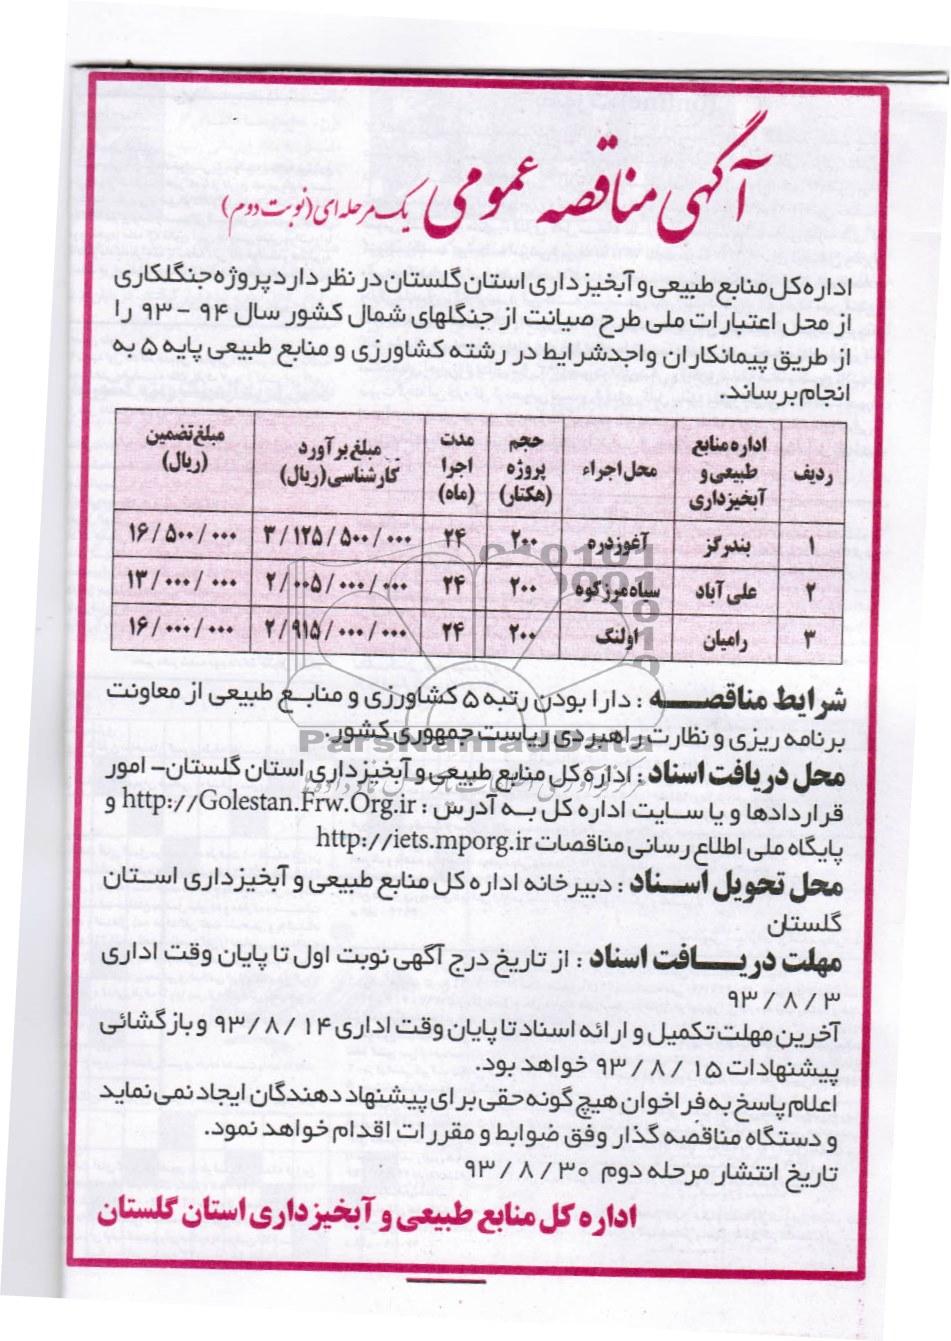 آگهی مناقصه عمومی یک مرحله‌ای (نوبت دوم)
اداره کل منابع طبیعی و آبخیزداری استان گلستان در نظر دارد پروژه جنگلکاری
از محل اعتبارات ملی طرح صیانت از جنگلهای شمال کشور سال ۹۴ - ۹۳ را
از طریق پیمانکاران واجدشرایط در رشته کشاورزی و منابع طبیعی پایه ۵ به
انجام برساند.
ردیف | اداره منابع طبیعی و آبخیزداری | محل اجراء | حجم پروژه (هکتار) | مدت اجرا (ماه) | مبلغ برآورد کارشناسی (ریال) | مبلغ تضمین (ریال)
۱ | بندرگز | آغوزدره | ۲۰۰ | ۲۴ | ۳/۱۲۵/۵۰۰/۰۰۰ | ۱۶/۵۰۰/۰۰۰
۲ | علی آباد | سیاه مرزکوه | ۲۰۰ | ۲۴ | ۲/۰۰۵/۰۰۰/۰۰۰ | ۱۳/۰۰۰/۰۰۰
۳ | رامیان | اولنگ | ۲۰۰ | ۲۴ | ۲/۹۱۵/۰۰۰/۰۰۰ | ۱۶/۰۰۰/۰۰۰
شرایط مناقصـــــه : دارا بودن رتبه ۵ کشاورزی و منابع طبیعی از معاونت
برنامه ریزی و نظارت راهبردی ریاست جمهوری کشور.
ParsNamadData
محل دریافت اسناد : اداره کل منابع طبیعی و آبخیزداری استان گلستان- امور
قراردادها و یا سایت اداره کل به آدرس : http://Golestan.Frw.Org.ir و
پایگاه ملی اطلاع رسانی مناقصات http://iets.mporg.ir
محل تحویل اسـناد : دبیرخانه اداره کل منابع طبیعی و آبخیزداری استان
گلستان
مهلت دریـــافت اسناد : از تاریخ درج آگهی نوبت اول تا پایان وقت اداری
۹۳ / ۸ / ۳
آخرین مهلت تکمیل و ارائه اسناد تا پایان وقت اداری ۹۳/۸/۱۴ و بازگشائی
پیشنهادات ۹۳/۸/۱۵ خواهد بود.
اعلام پاسخ به فراخوان هیچ گونه حقی برای پیشنهاد دهندگان ایجاد نمی نماید
و دستگاه مناقصه گذار وفق ضوابط و مقررات اقدام خواهد نمود.
تاریخ انتشار مرحله دوم ۹۳/۸/۳۰
اداره کل منابع طبیعی و آبخیزداری استان گلستان